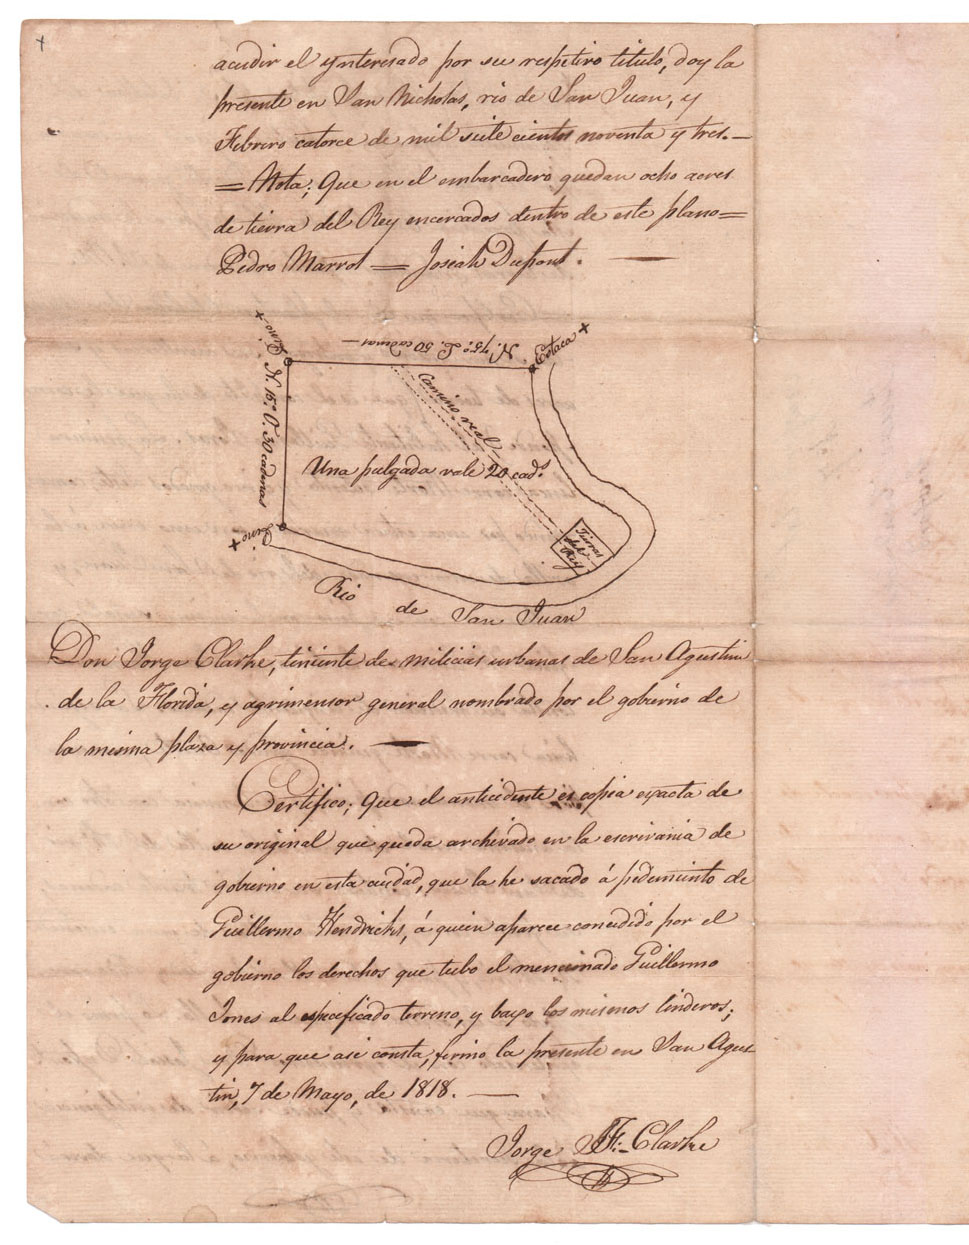 acudir el ynteresado por su respetivo titulo, doy la
presente en San Nicholas, rio de San Juan, y
Febrero catorce de mil siete cientos noventa y tres.—
= Nota; Que en el embarcadero quedan ocho acres
de tierra del Rey encercados dentro de este plano=
Pedro Marrot = Josiah Dupont. —
Pino +
N. 75º E. 50 cadenas —
Estaca +
N. 15º O. 30 cadenas
Camino real
Una pulgada vale 20 cad.s
Tierras
del
Rey
Pino +
Rio de San Juan
Don Jorge Clarke, teniente de milicias urbanas de San Agustin
de la Florida, y agrimensor general nombrado por el gobierno de
la misma plaza y provincia. —
Certifico; Que el antecidente es copia exacta de
su original que queda archivado en la escrivania de
gobierno en esta ciudad, que la he sacado á pedemiento de
Guillermo Hendricks, á quien aparece concedido por el
gobierno los derechos que tubo el mencionado Guillermo
Jones al especificado terreno, y bajo los mismos linderos;
y para que asi consta, firmo la presente en San Agus-
tin, 7 de Mayo, de 1818. —
Jorge J. F. Clarke